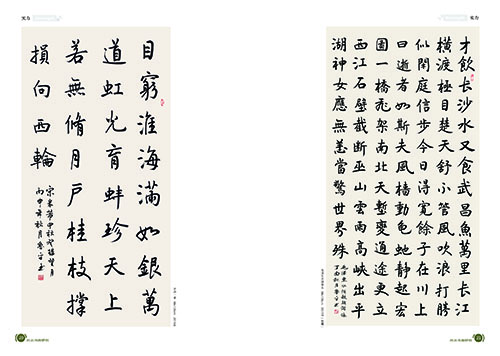 目窮淮海滿如銀萬
道虹光育蚌珍天上
若無脩月戶桂枝撐
損向西輪
宋米芾中秋登樓望月
丙申年秋月
才飲長沙水又食武昌魚萬里長江
橫渡極目楚天舒不管風吹浪打勝
似閒庭信步今日得寬餘子在川上
曰逝者如斯夫風檣動龜蛇靜起宏
圖一橋飛架南北天塹變通途更立
西江石壁截斷巫山雲雨高峽出平
湖神女應無恙當驚世界殊
毛澤東水調歌頭游泳
丁酉秋月